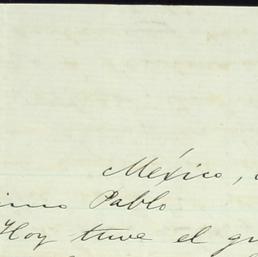 México,
Pablo
Hoy tuve el